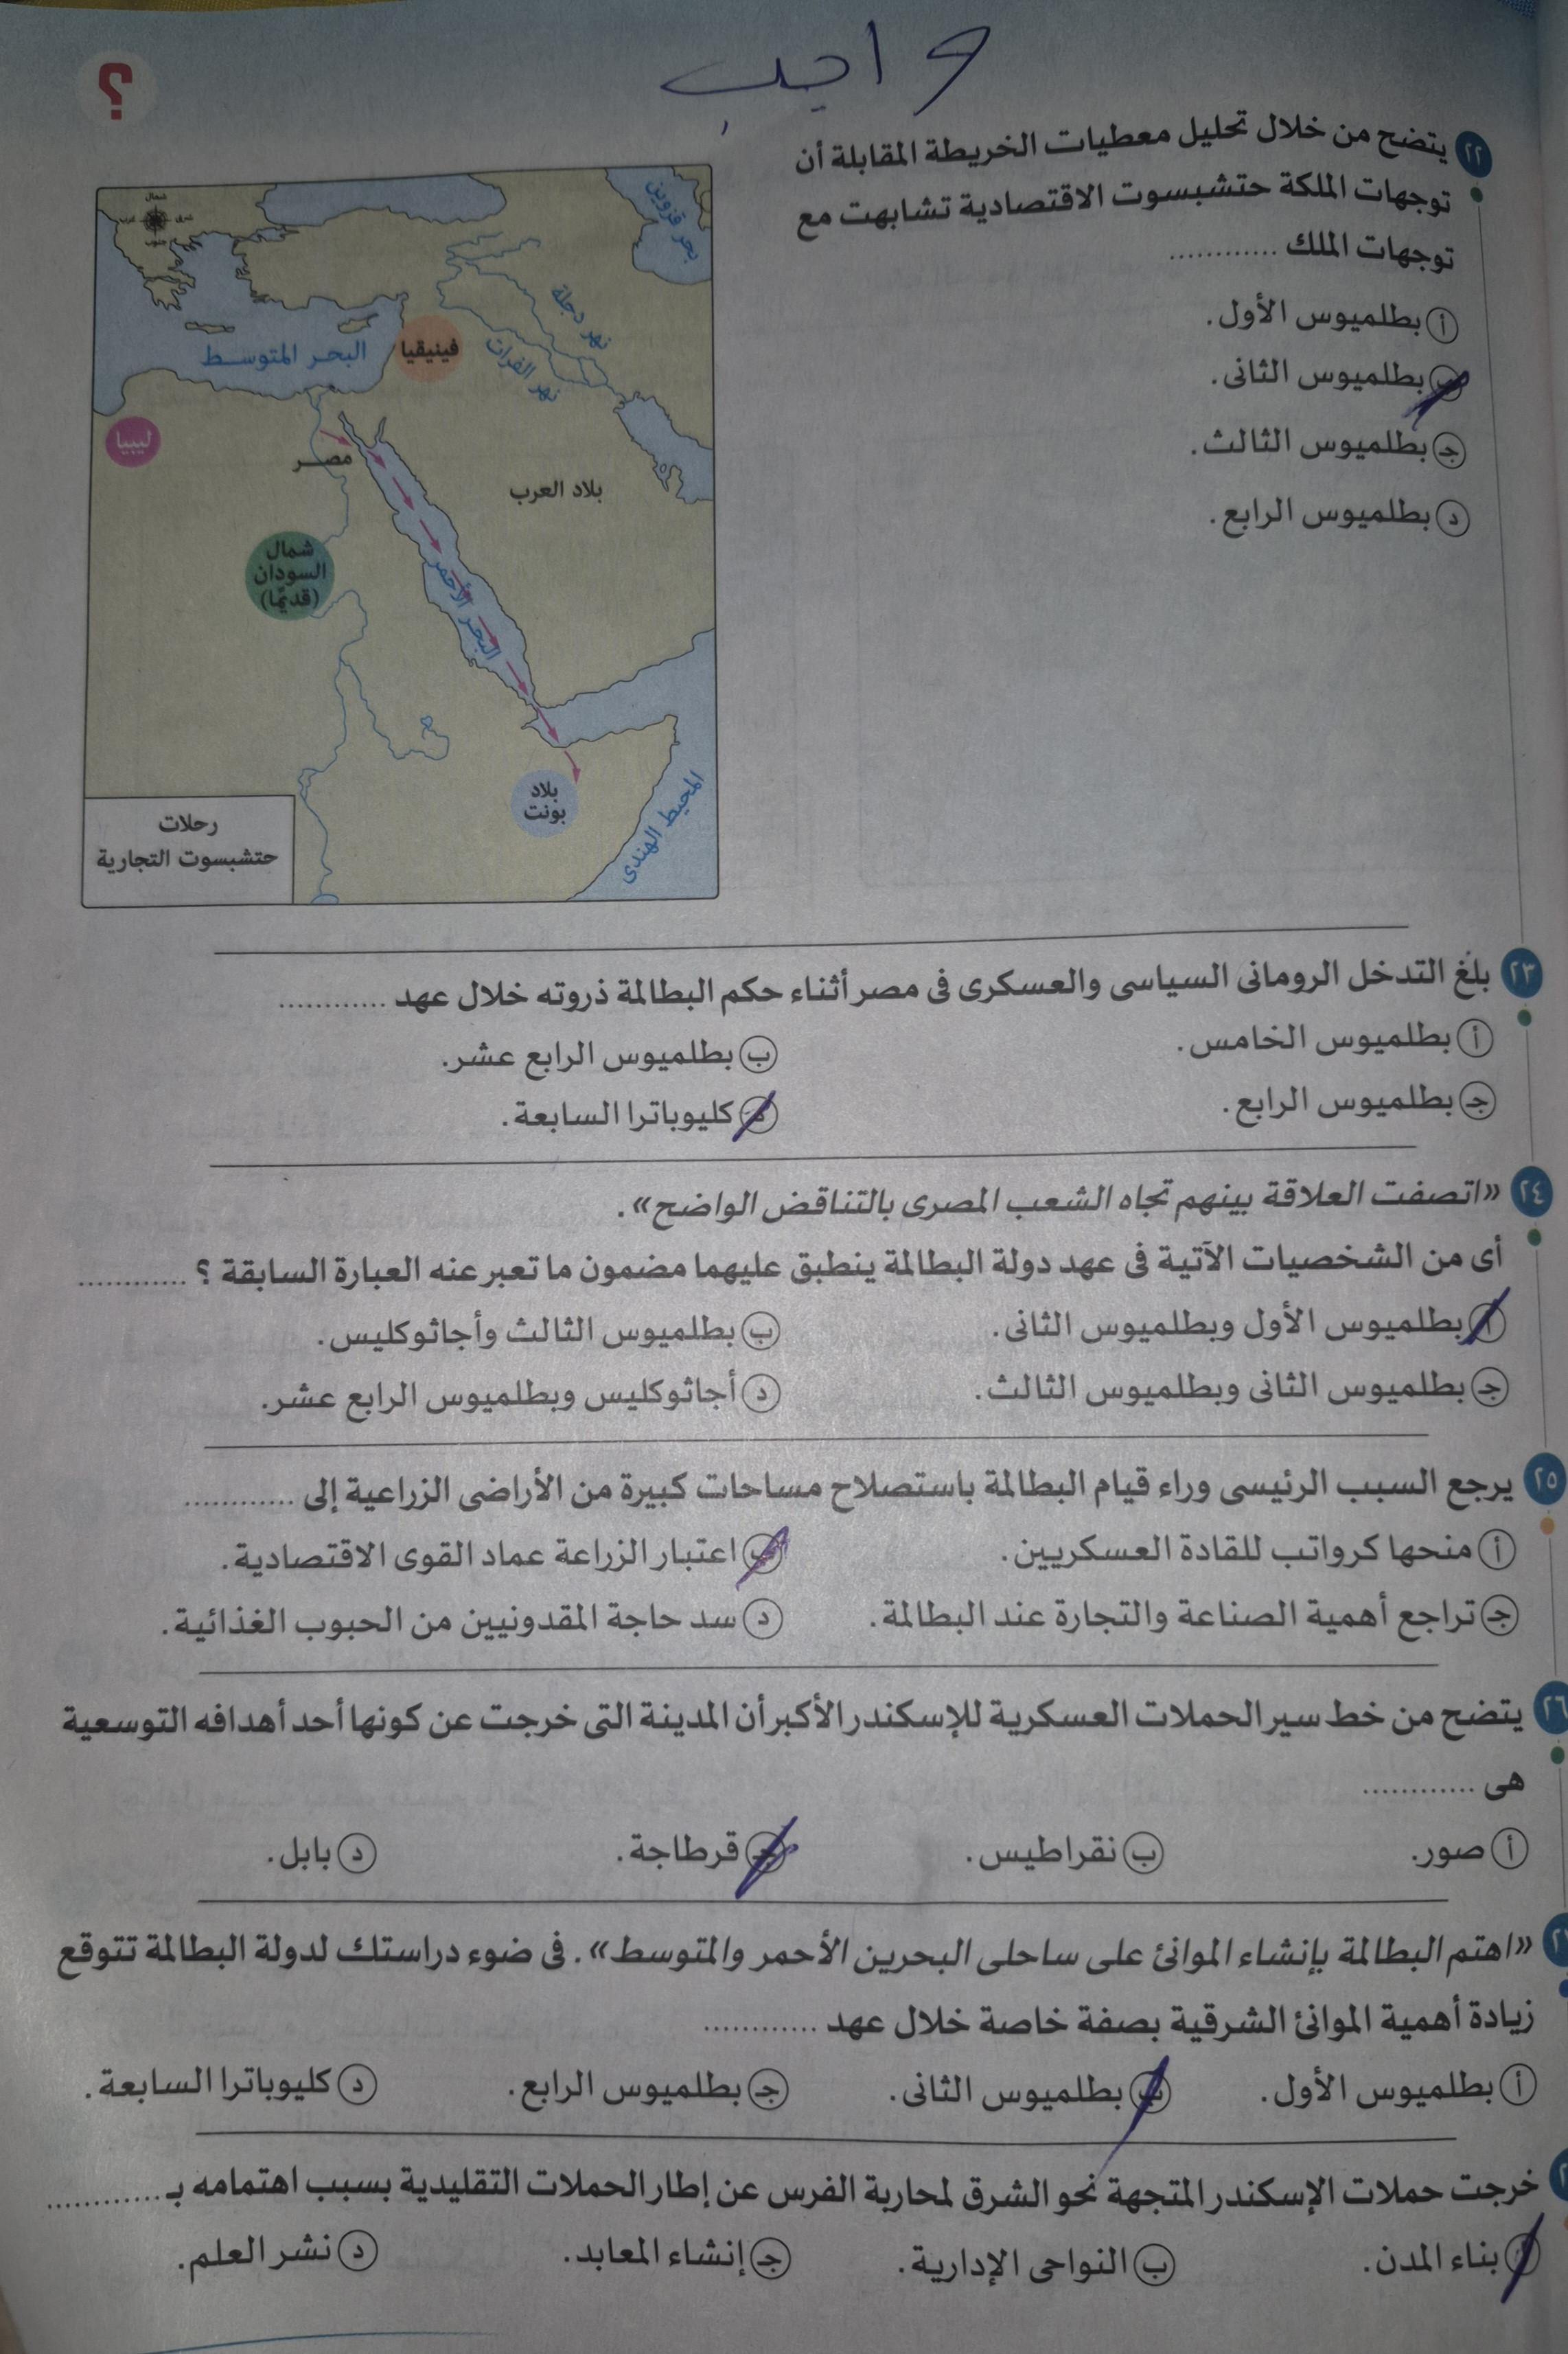 واجب
؟
٢٢ يتضح من خلال تحليل معطيات الخريطة المقابلة أن
توجهات الملكة حتشبسوت الاقتصادية تشابهت مع
توجهات الملك ............
أ بطلميوس الأول.
ب بطلميوس الثانى.
جـ بطلميوس الثالث.
د بطلميوس الرابع.
شمال
شرق
غرب
جنوب
بحر قزوين
نهر دجلة
نهر الفرات
فينيقيا
البحر المتوسط
ليبيا
مصر
بلاد العرب
شمال
السودان
(قديمًا)
البحر الأحمر
بلاد
بونت
المحيط الهندى
رحلات
حتشبسوت التجارية
٢٣ بلغ التدخل الرومانى السياسى والعسكرى فى مصر أثناء حكم البطالمة ذروته خلال عهد ............
أ بطلميوس الخامس.
ب بطلميوس الرابع عشر.
جـ بطلميوس الرابع.
د كليوباترا السابعة.
٢٤ «اتصفت العلاقة بينهم تجاه الشعب المصرى بالتناقض الواضح».
أى من الشخصيات الآتية فى عهد دولة البطالمة ينطبق عليهما مضمون ما تعبر عنه العبارة السابقة ؟ ............
أ بطلميوس الأول وبطلميوس الثانى.
ب بطلميوس الثالث وأجاثوكليس.
جـ بطلميوس الثانى وبطلميوس الثالث.
د أجاثوكليس وبطلميوس الرابع عشر.
٢٥ يرجع السبب الرئيسى وراء قيام البطالمة باستصلاح مساحات كبيرة من الأراضى الزراعية إلى ............
أ منحها كرواتب للقادة العسكريين.
ب اعتبار الزراعة عماد القوى الاقتصادية.
جـ تراجع أهمية الصناعة والتجارة عند البطالمة.
د سد حاجة المقدونيين من الحبوب الغذائية.
٢٦ يتضح من خط سير الحملات العسكرية للإسكندر الأكبر أن المدينة التى خرجت عن كونها أحد أهدافه التوسعية
هى ............
أ صور. ب نقراطيس. جـ قرطاجة. د بابل.
«اهتم البطالمة بإنشاء الموانئ على ساحلى البحرين الأحمر والمتوسط». فى ضوء دراستك لدولة البطالمة تتوقع
زيادة أهمية الموانئ الشرقية بصفة خاصة خلال عهد ............
أ بطلميوس الأول. ب بطلميوس الثانى. جـ بطلميوس الرابع. د كليوباترا السابعة.
خرجت حملات الإسكندر المتجهة نحو الشرق لمحاربة الفرس عن إطار الحملات التقليدية بسبب اهتمامه بـ ............
أ بناء المدن. ب النواحى الإدارية. جـ إنشاء المعابد. د نشر العلم.